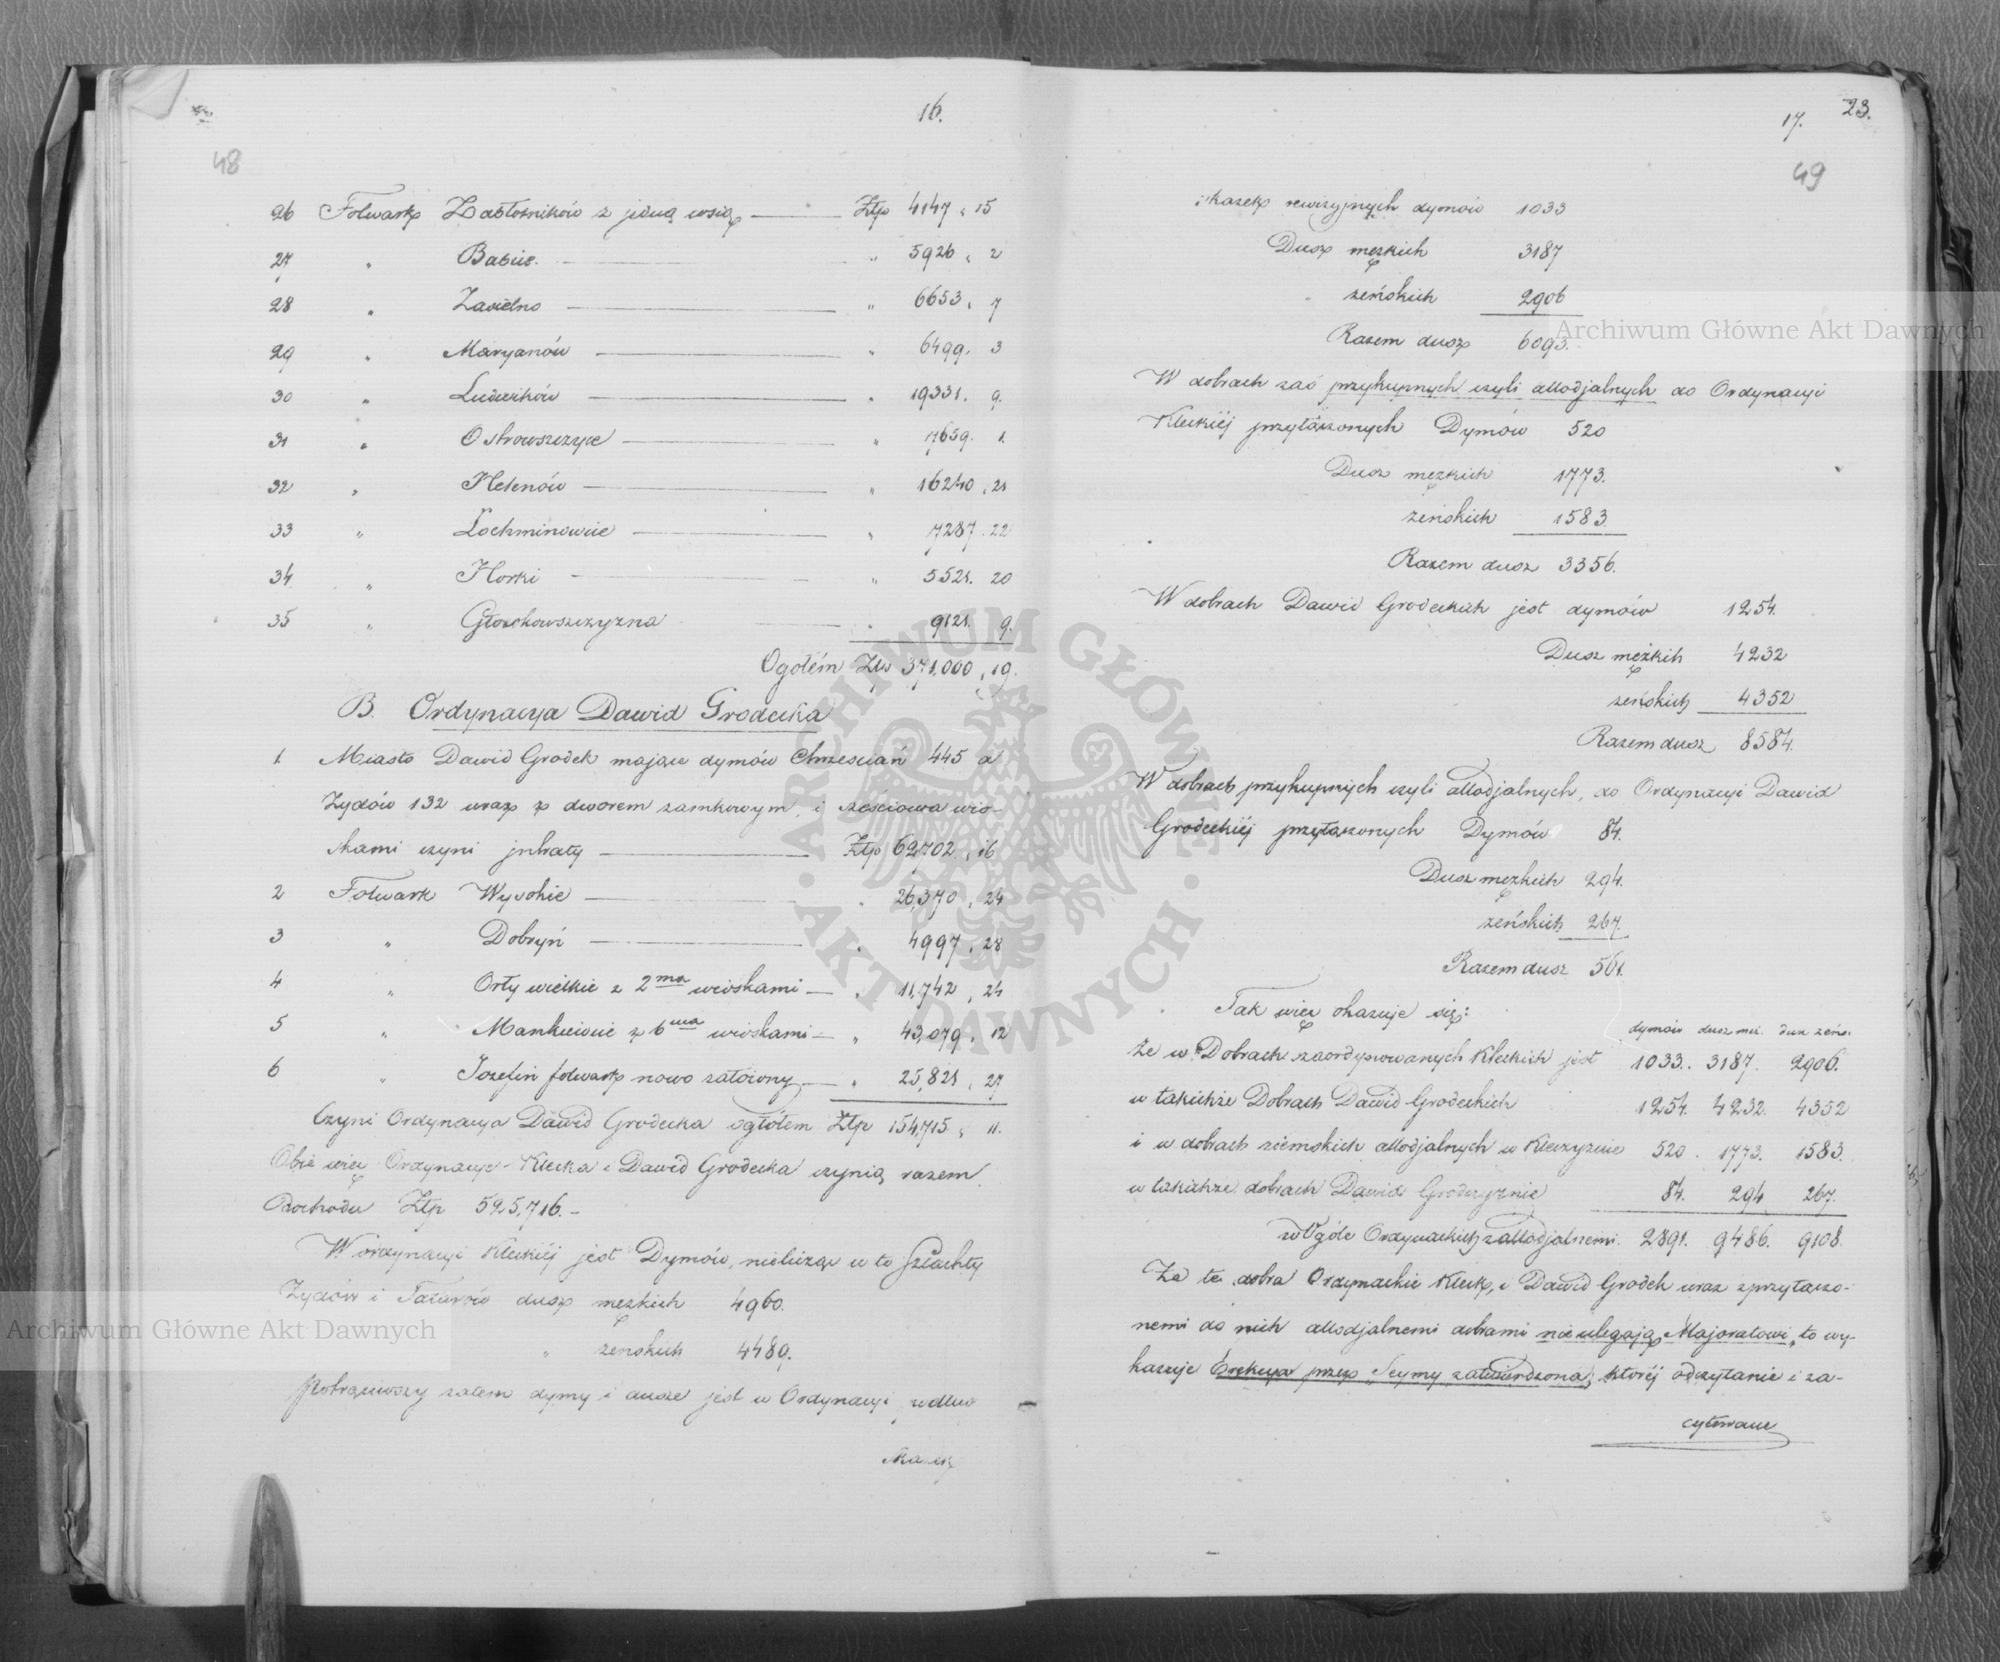 16.
48
26 Folwark Zabłotników z jedną wsią Złp 4147 „ 15
27 „ Babice „ 5926 „ 2
28 „ Zawielno „ 6653 „ 7
29 „ Maryanów „ 6499. 3
30 „ Ludwików „ 19331. 9.
31 „ Ostrowszczyce „ 7659. 1.
32 „ Helenów „ 16240 „ 21
33 „ Łochminowcie „ 7287. 22
34 „ Horki „ 5521. 20
35 „ 9121. 9.
Ogółem Złp 371,000 „ 19.
B. Ordynacya Dawid Grodecka
1 Miasto Dawid Grodek mające dymów Chrześcian 445 a
Żydów 132 wraz z dworem zamkowym, i sześciowa wio-
skami czyni intraty Złp 62,702 „ 16
2 Folwark Wysokie „ 26,370 „ 24
3 „ Dobryń „ 4997 „ 28
4 „ Orły wielkie z 2ma wioskami „ 11,742 „ 24
5 „ Mankiewicie z 6ma wioskami „ 43,079 „ 12
6 „ Jozefin folwark nowo założony „ 25,821 „ 27
Czyni Ordynacya Dawid Grodecka ogółem Złp 154,715 „ 11.
Obie więc Ordynacye Klecka i Dawid Grodecka czynią razem
Dochodu Złp 525,716.-
W ordynacyi Kleckiéj jest Dymów, nielicząc w to Szlachty
Żydów i Tatarów dusz męzkich 4960.
„ żenskich 4489.
Potrąciwszy zatem dymy i dusze jest w Ordynacyi wedłuo
skazek
17. 23.
49
skazek rewizyjnych dymów 1033
Dusz męzkich 3187
„ żeńskich 2906
Razem dusz 6093.
W dobrach zaś przykupnych czyli allodjalnych do Ordynacyi
Kleckiéj przyłączonych Dymów 520
Dusz męzkich 1773.
żeńskich 1583.
Razem dusz 3356.
W dobrach Dawid Grodeckich jest dymów 1254.
Dusz męzkich 4232
żeńskich 4352
Razem dusz 8584.
W dobrach przykupnych czyli allodjalnych, do Ordynacyi Dawid
Grodeckiéj przyłączonych Dymów 84.
Dusz męzkich 294.
żeńskich 267.
Razem dusz 561.
Tak więc okazuje się:
dymów dusz męz. dusz żeńs.
że w Dobrach zaordynowanych Kleckich jest 1033. 3187. 2906.
w takichże Dobrach Dawid Grodeckich 1254. 4232. 4352
i w dobrach ziemskich allodjalnych w Klecczyznie 520. 1773. 1583.
w takichże dobrach Dawid Grodczyznie 84. 294 267.
wOgóle Ordynackich zallodjalnemi. 2891. 9486. 9108.
Że te dobra Ordynackie Kleck, i Dawid Grodek wraz zprzyłączo-
nemi do nich allodjalnemi dobrami nie ulegają Majoratowi, to wy-
kazuje Erekcya przez Seymy zatwierdzona, któréj odczytanie i za-
cytowanie
Archiwum Główne Akt Dawnych
Archiwum Główne Akt Dawnych
ARCHIWUM GŁÓWNE · AKT DAWNYCH ·